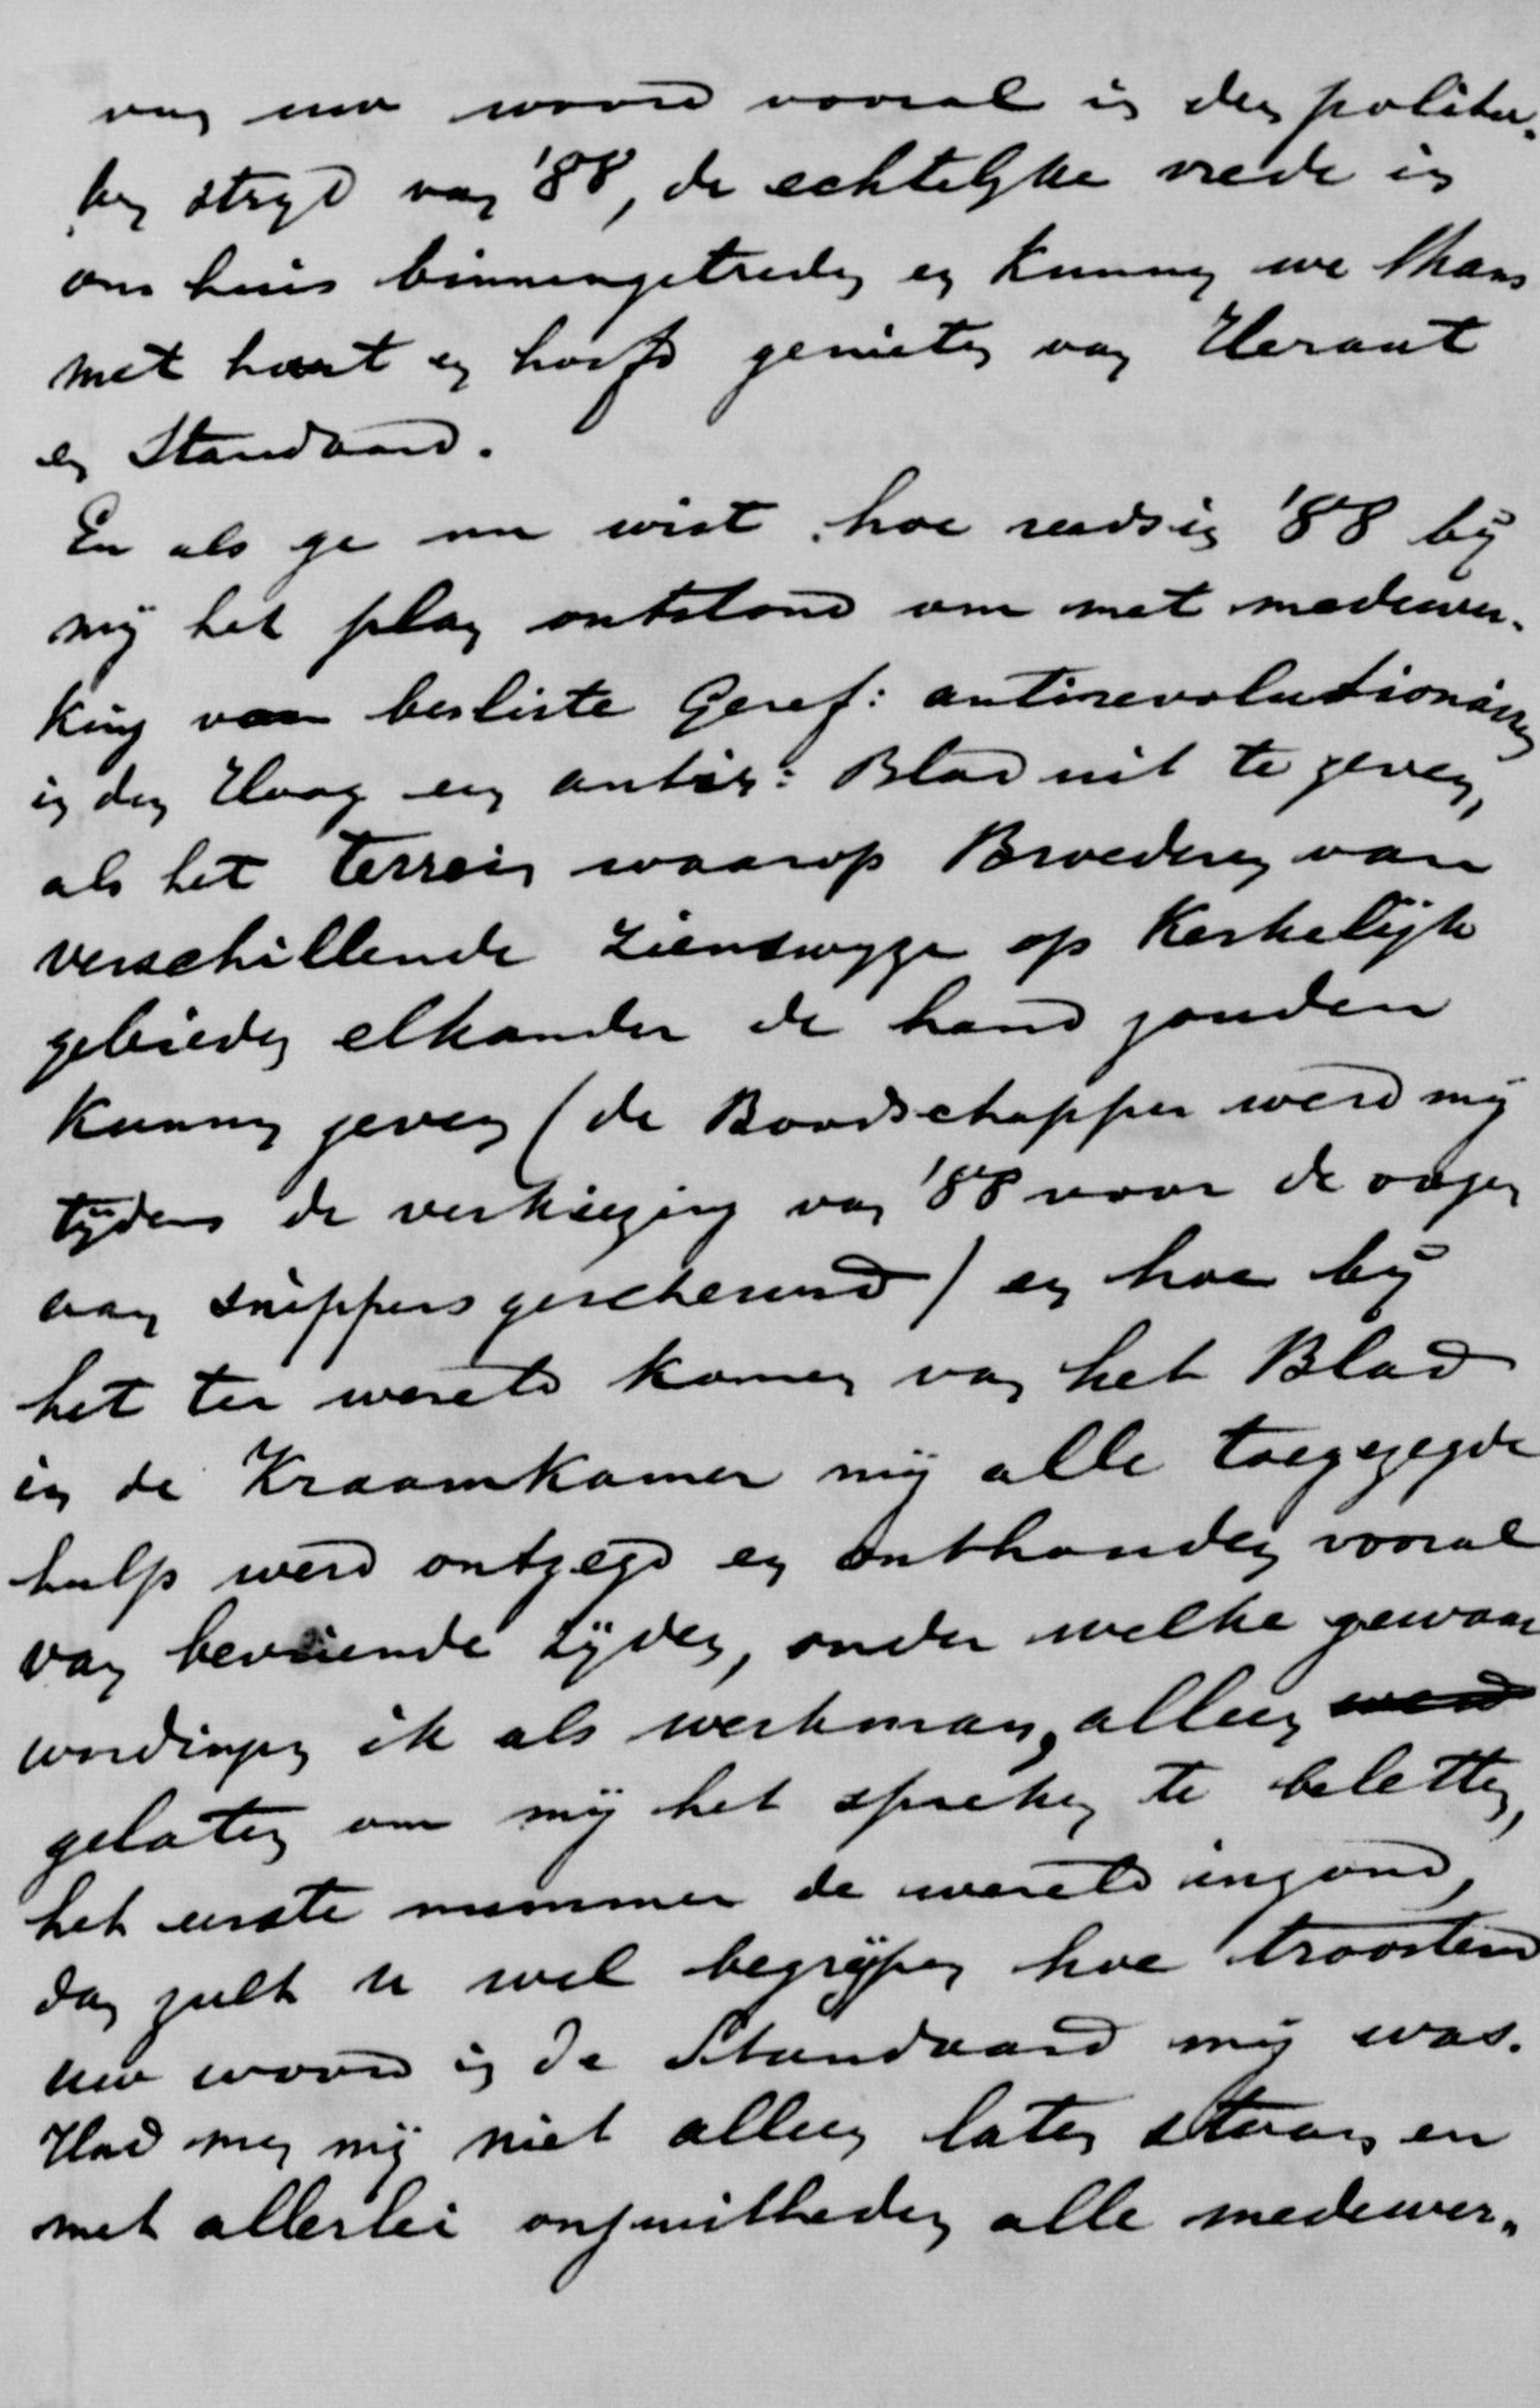 van uw woord vooral in den politie-
ken stryd van '88, de echtelyke vrede in
ons huis binnengetreden en kunnen we thans
met hart en hoofd genieten van Heraut
en Standaard.
En als ge nu wist hoe reeds in '88 by
mij het plan ontstond om met medewer-
king van besliste Geref: antirevolutionairen
in den Haag een antir: Blad uit te geven,
als het terrein waarop Broederen van
verschillende zienswyze op Kerkelijk
gebieden elkander de hand zouden
kunnen geven (de Boodschapper werd mij
tydens de verkiezing van '88 voor de oogen
aan snippers gescheurd) en hoe bij
het ter wereld komen van het Blad
in de Kraamkamer mij alle toegezegde
hulp werd ontzegd en onthouden vooral
van bevriende zijden, onder welke gewaar
wordingen ik als werkman, alleen werd
gelaten om mij het spreken te beletten,
het eerste nummer de wereld inzond,
dan zult u wel begrijpen hoe troostend
uw woord in de Standaard mij was.
Had men mij niet alleen laten staan en
met allerlei onjuistheden alle medewer-